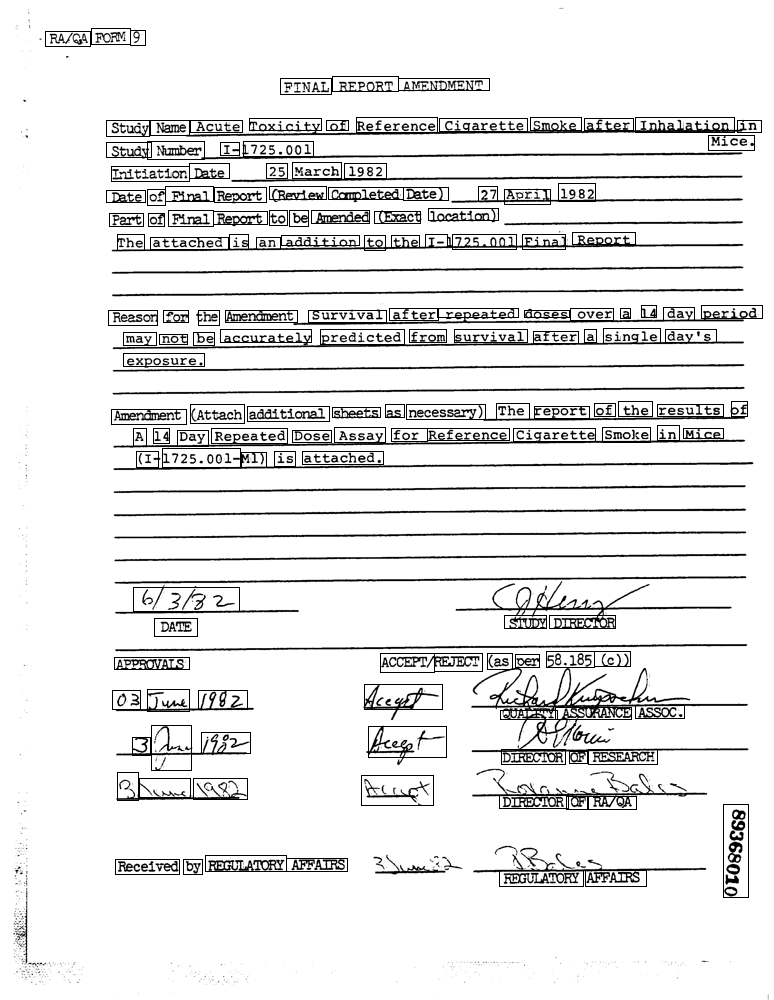 RA/QA FORM 9
FINAL REPORT AMENDMENT
Study Name Acute Toxicity of Reference Cigarette Smoke after Inhalation in Mice.
Study Number I-1725.001
Initiation Date 25 March 1982
Date of Final Report (Review Completed Date) 27 April 1982
Part of Final Report to be Amended (Exact location)
The attached is an addition to the I-1725.001 Final Report
Reason for the Amendment Survival after repeated doses over a 14 day period
may not be accurately predicted from survival after a single day's
exposure.
Amendment (Attach additional sheets as necessary) The report of the results of
A 14 Day Repeated Dose Assay for Reference Cigarette Smoke in Mice
(I-1725.001-M1) is attached.
6/3/82 CJHenry
DATE STUDY DIRECTOR
APPROVALS ACCEPT/REJECT (as per 58.185 (c))
03 June 1982 Accept Richard
QUALITY ASSURANCE ASSOC.
3 June 1982 Accept
DIRECTOR OF RESEARCH
3 June 1982 Accept Roxanne Bales
DIRECTOR OF RA/QA
Received by REGULATORY AFFAIRS 3 June 82 RBales
REGULATORY AFFAIRS
89368010